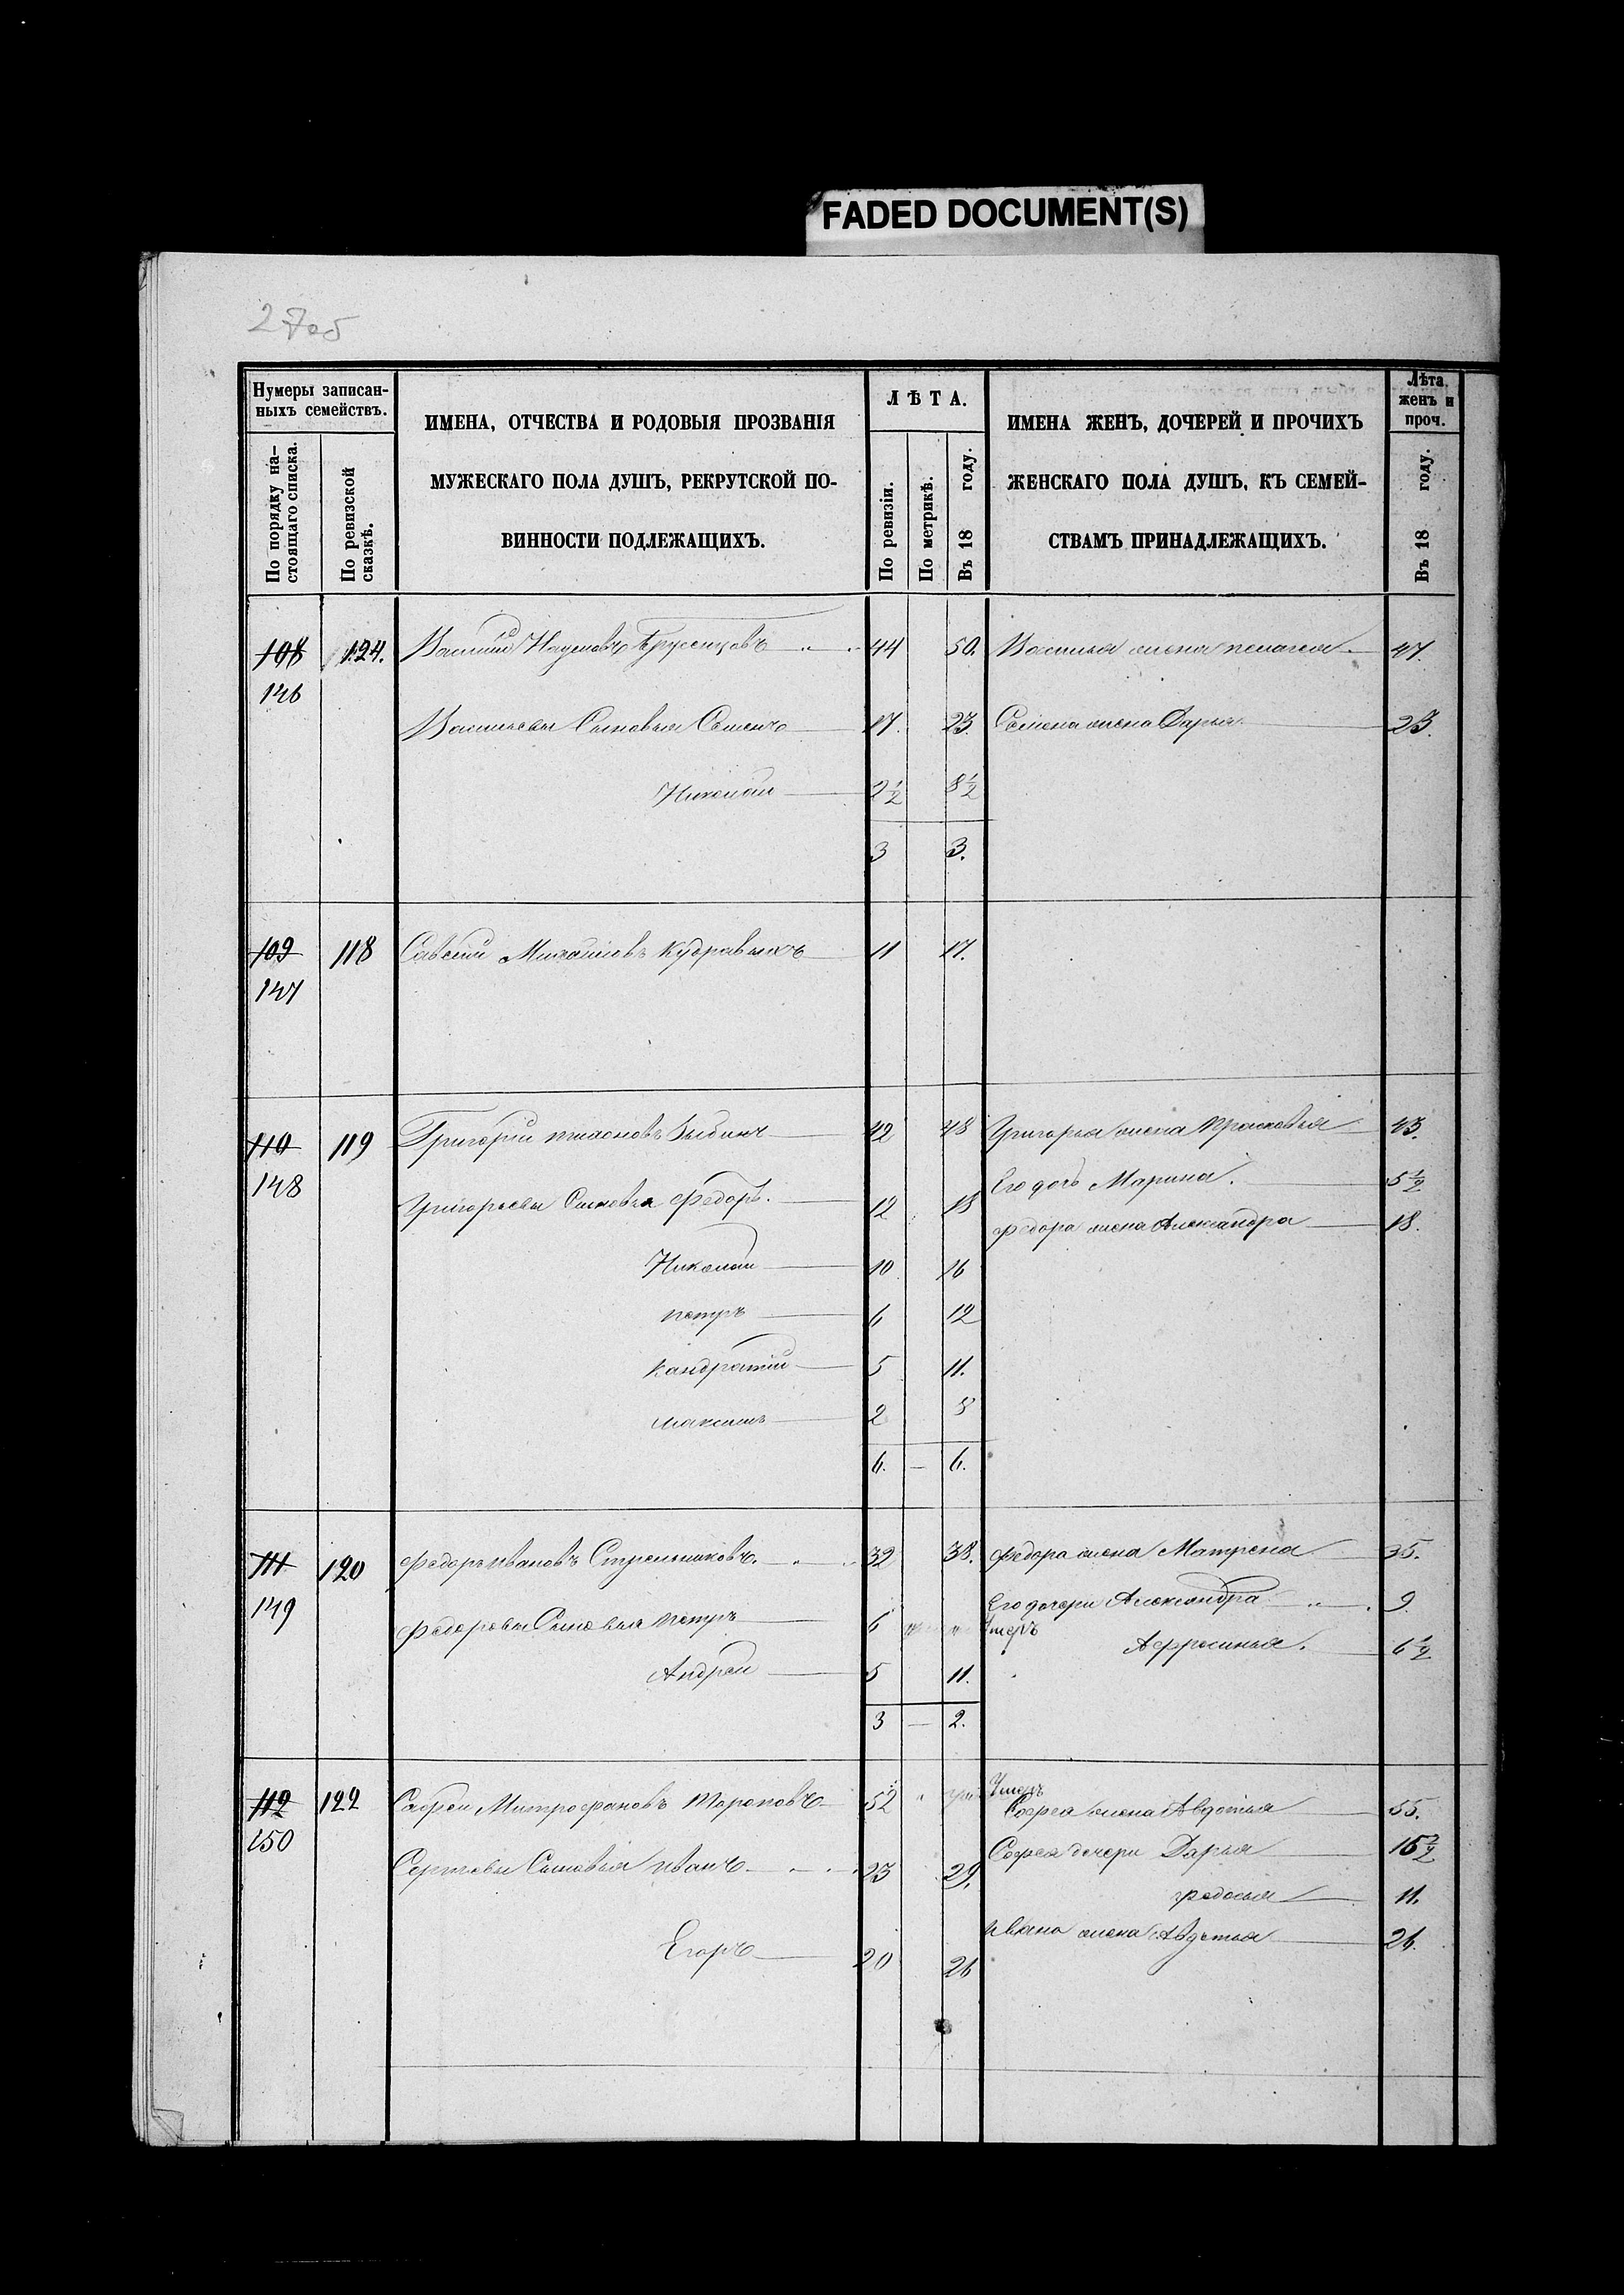 FADED DOCUMENT(S)
27об
Нумеры записан-
ныхъ семействъ.
По порядку на-
стоящаго списка.
По ревизской
сказкѣ.
ИМЕНА, ОТЧЕСТВА И РОДОВЫЯ ПРОЗВАНІЯ
МУЖЕСКАГО ПОЛА ДУШЪ, РЕКРУТСКОЙ ПО-
ВИННОСТИ ПОДЛЕЖАЩИХЪ.
ЛѢТА.
По ревизіи.
По метрикѣ.
Въ 18 году.
ИМЕНА ЖЕНЪ, ДОЧЕРЕЙ И ПРОЧИХЪ
ЖЕНСКАГО ПОЛА ДУШЪ, КЪ СЕМЕЙ-
СТВАМЪ ПРИНАДЛЕЖАЩИХЪ.
Лѣта
женъ и
проч.
Въ 18 году.
108 124. Василій Наумовъ Брусенцовъ 44 50. Василья жена пелагея 47.
146
Васильевы Сыновья Семенъ 17. 23. Семена жена Дарья 23.
Николай 2½ 8½
3 3.
109 118 Савелій Михайловъ Кудрявыхъ 11 17.
147
110 119 Григорій Зыбинъ 42 48 Григорья жена Прасковья 43.
148 Его дочь Марина. 5½
Григорьевы Сыновья Федоръ. 12 18 Федора жена Александра 18.
Николай 10 16
петръ 6 12
Кандратій 5 11.
Максимъ 2 8
6. — 6.
111 120 Федоръ Ивановъ Стрельниковъ. 32 38. Федора жена Матрена 35.
149 Его дочери Александра 9.
Федоровы Сыновья петръ 6 Умеръ
Афросинья. 6½
Андрей 5 11.
3 — 2.
112 122 Сафрон Митрофановъ Тороповъ 52 Умеръ
Софрея жена Авдотья 55.
150 Софрея дочери Дарья 15½
Сергеевы Сыновья Иванъ 23 29.
Федосья 11.
Ивана жена Авдотья 26.
Егоръ 20 26